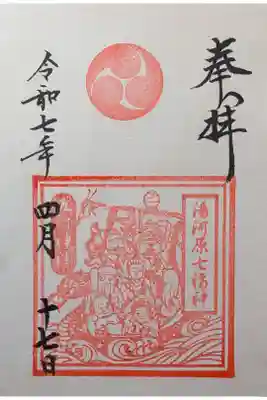 奉拝
湯河原七福神
令和七年 四月 十七日